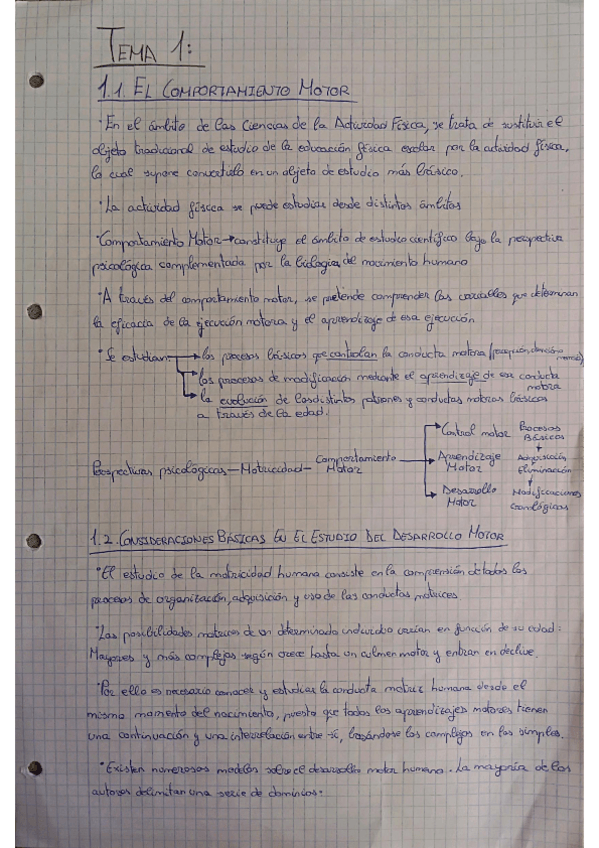 TEMA 1:
1.1 EL COMPORTAMIENTO MOTOR
· En el ámbito de las Ciencias de la Actividad Física, se trata de sustituir el
objeto tradicional de estudio de la educación física escolar por la actividad física,
lo cual supone convertirlo en un objeto de estudio más básico.
· La actividad física se puede estudiar desde distintos ámbitos
· Comportamiento Motor → constituye el ámbito de estudio científico bajo la perspectiva
psicológica complementada por la biológica del movimiento humano
· A través del comportamiento motor, se pretende comprender las variables que determinan
la eficacia de la ejecución motora y el aprendizaje de esa ejecución
· Se estudian → los procesos básicos que controlan la conducta motora (percepción, atención, memoria)
→ los procesos de modificación mediante el aprendizaje de esa conducta motora
→ la evolución de los distintos patrones y conductas motoras básicas
a través de la edad.
Perspectivas psicológicas – Motricidad – Comportamiento Motor
→ Control motor Procesos Básicos
→ Aprendizaje Motor Adquisición Eliminación
→ Desarrollo Motor Modificaciones Cronológicas
1.2. CONSIDERACIONES BÁSICAS EN EL ESTUDIO DEL DESARROLLO MOTOR
· El estudio de la motricidad humana consiste en la comprensión de todos los
procesos de organización, adquisición y uso de las conductas motrices
· Las posibilidades motrices de un determinado individuo varían en función de su edad:
Mayores y más complejas según crece hasta un culmen motor y entran en declive.
· Por ello es necesario conocer y estudiar la conducta motriz humana desde el
mismo momento del nacimiento, puesto que todos los aprendizajes motores tienen
una continuación y una interrelación entre sí, basándose los complejos en los simples.
· Existen numerosos modelos sobre el desarrollo motor humano. La mayoría de los
autores delimitan una serie de dominios: